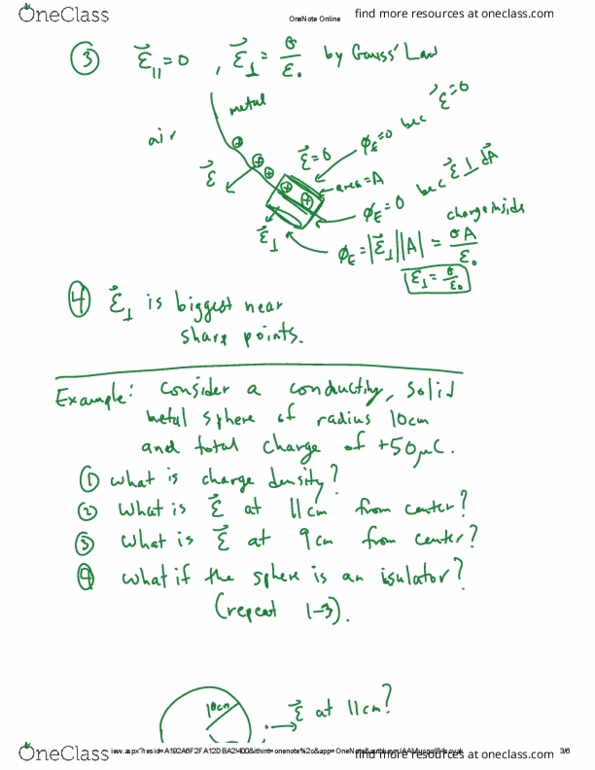 OneClass
OneNote Online
find more resources at oneclass.com
③ E⃗|| = 0 , E⃗⊥ = σ/ε₀ by Gauss' Law
metal
air
E⃗=0
ϕE=0 bec E⃗=0
area=A
ϕE=0 bec E⃗⊥dA⃗
E⃗
E⃗⊥
charge inside
ϕE = |E⃗⊥||A| = σA/ε₀
E⊥ = σ/ε₀
④ E⃗⊥ is biggest near
share points.
Example: Consider a conducting, solid
metal sphere of radius 10cm
and total charge of +50μC.
① what is charge density?
② What is E⃗ at 11cm from center?
③ what is E⃗ at 9cm from center?
④ what if the sphere is an insulator?
(repeat 1-3).
10cm
E⃗ at 11cm?
OneClass
3/6
find more resources at oneclass.com